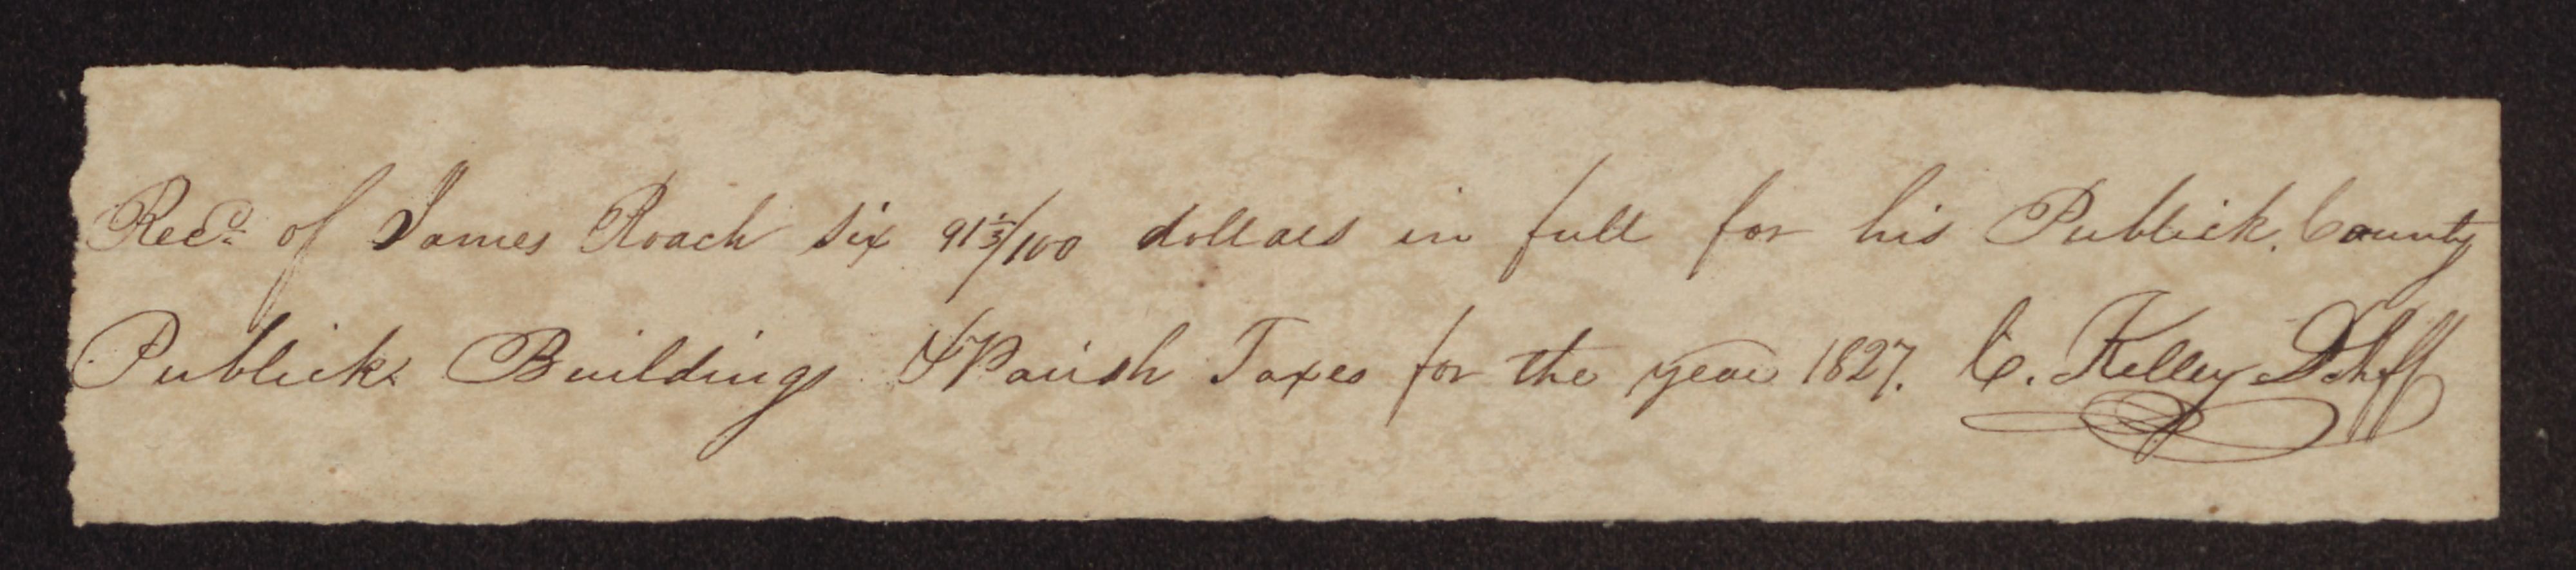 Recd. of James Roach six 91½/100 dollars in full for his Publick, County
Publick Buildings & Parish Taxes for the year 1827. C. Kelley D Shff